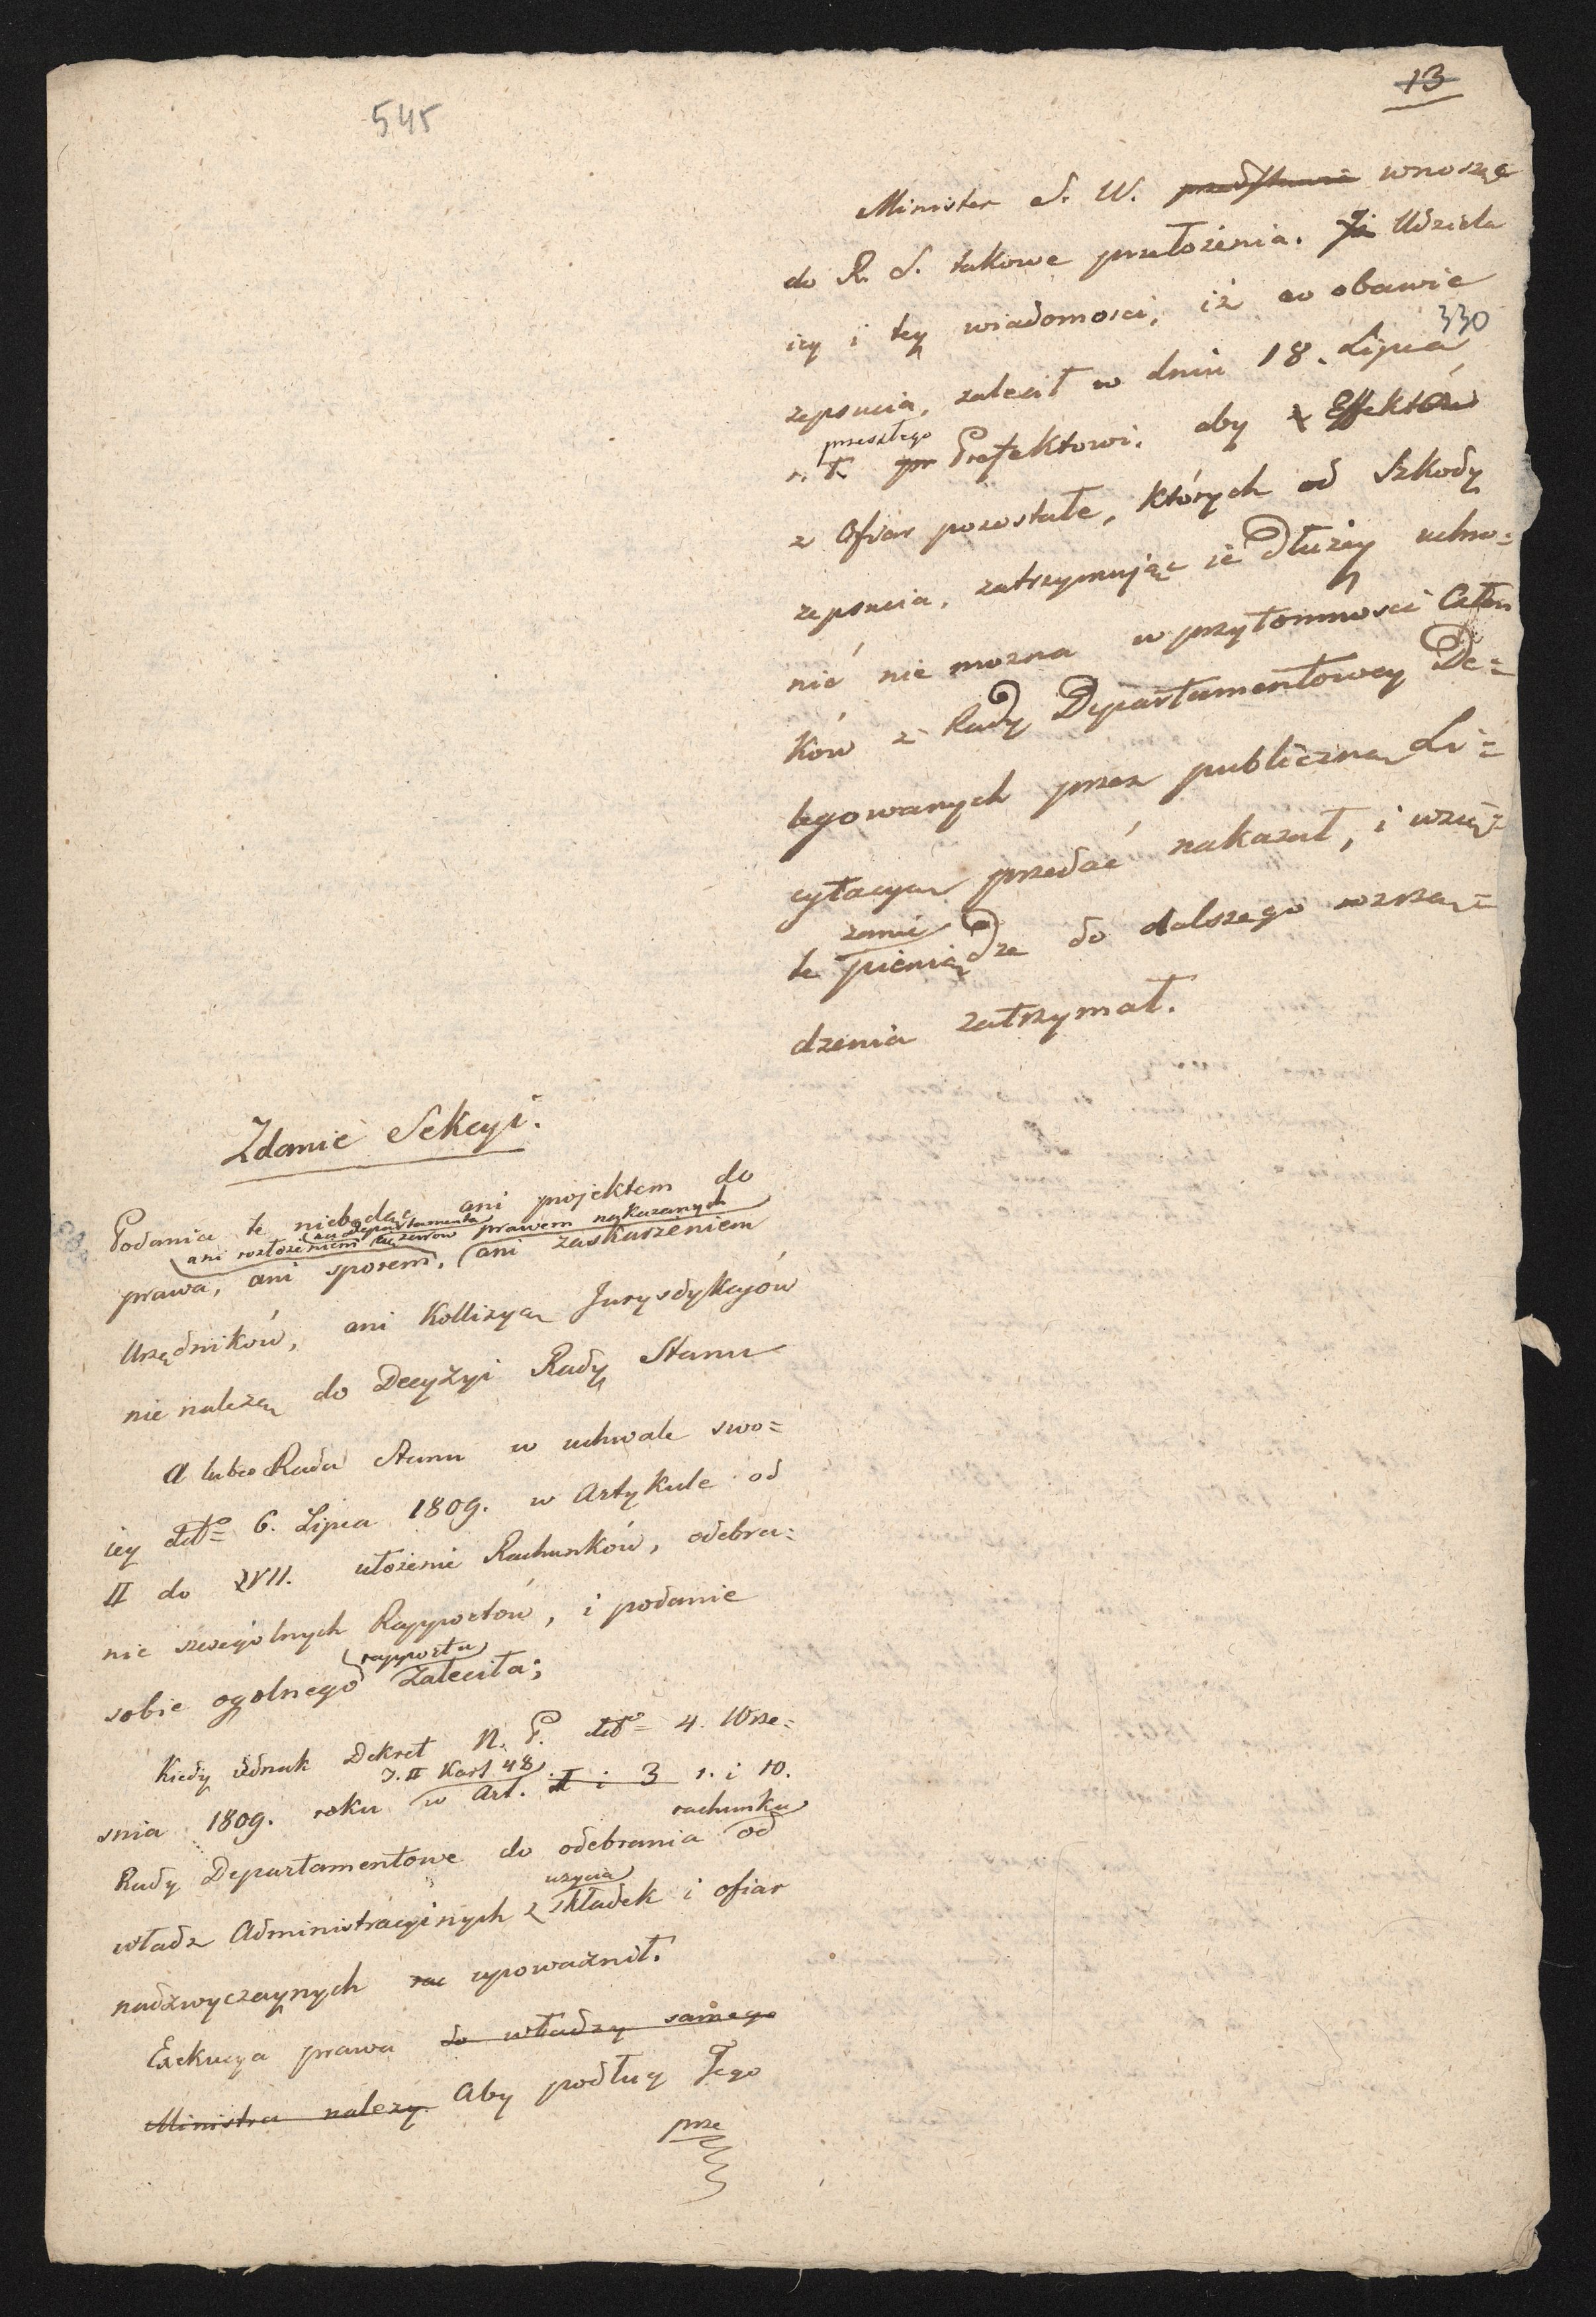 13
545
Minister S. W. przedstawia wnosząc
do R. S. takowe przełożenia. Udziela
iey i tey wiadomości, iż w obawie
330
zepsucia, zalecił w dniu 18. Lipca
przeszłego
r. Prefektowi, aby z Effektów
z Ofiar pozostałe, których od szkody
zepsucia, zatrzymując ie dłużey uchro=
nić nie można w przytomności Człon
ków z Rady Departamentowey De=
legowanych przez publiczną Li=
cytacyą przedać nakazał, i wzię=
zamie
te pieniądze do dalszego rozrzą=
dzenia zatrzymał.
Zdanie Sekcyi.
Podania te niebędąc ani projektem do
na departamenta
ani rozłożeniem ciężarow prawem nakazanych
prawa, ani sporem, ani zaskarzeniem
Urzędników, ani Kollizyą Jurysdykcyów
nie należą do Decyzyi Rady Stanu
A lubo Rada Stanu w uchwale swo=
iey dtto 6. Lipca 1809. w Artykule od
II do XVII. ułożenie Rachunków, odebra=
nie szczegolnych Rapportów, i podanie
rapportu
sobie ogolnego zaleciła;
Kiedy iednak Dekret N. P. dtto 4. Wrze=
T. II Kart 48
snia 1809. roku w Art. II i 3 1. i 10.
rachunku
Rady Departamentowe do odebrania od
uzycia
władz Administracyinych z składek i ofiar
nadzwyczaynych rac upoważnił.
Exekucya prawa do władzy samego
Ministra należy. Aby podług Jego
prze